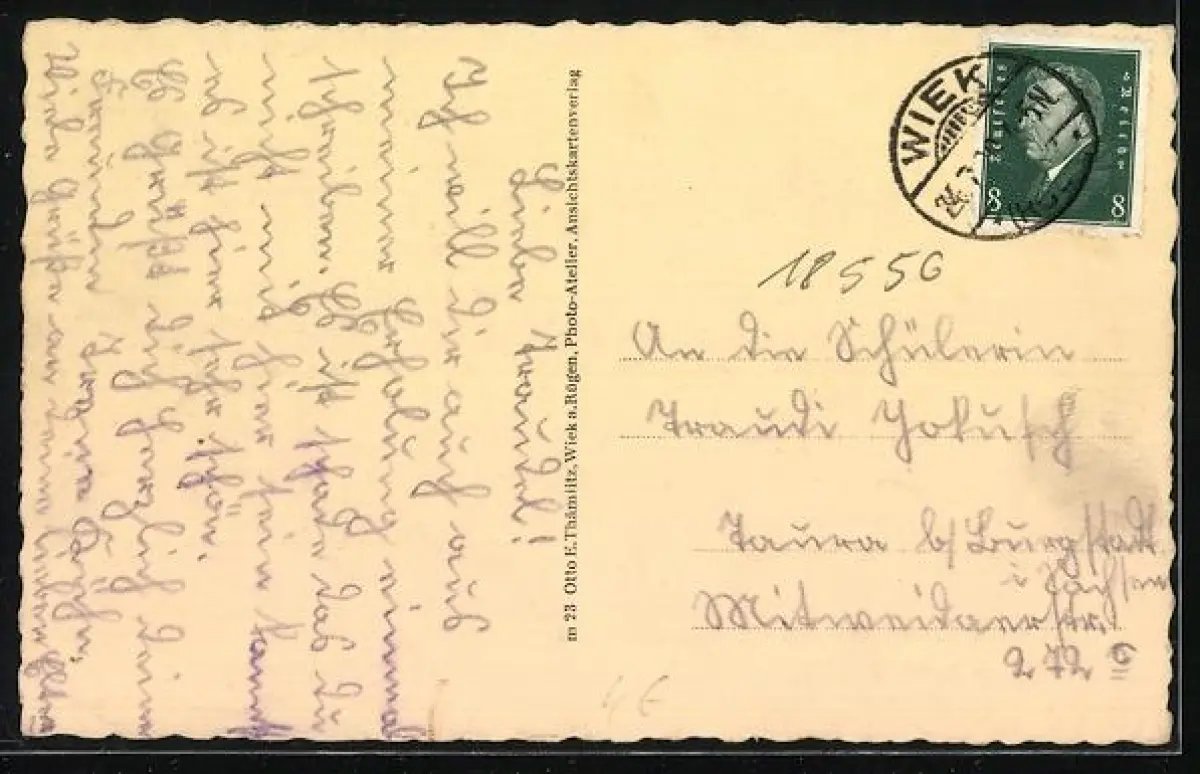 Liebe Traudel!
Ich will Dir auch aus
meiner Erholung einmal
schreiben. Es ist schade das Du
nicht mit hier sein kannst
es ist hier sehr schön.
Es grüßt dich herzlich deine
Freundin
Viele Grüße an deine lieben Eltern
m 23 Otto E. Thämlitz, Wiek a. Rügen, Photo-Atelier, Ansichtskartenverlag
WIEK
Deutsches Reich
8 8
18556
An die Schülerin
Traudi Jokusch
Taura b/ Burgstädt
i Sachsen
Mitweidaerstr.
272 c